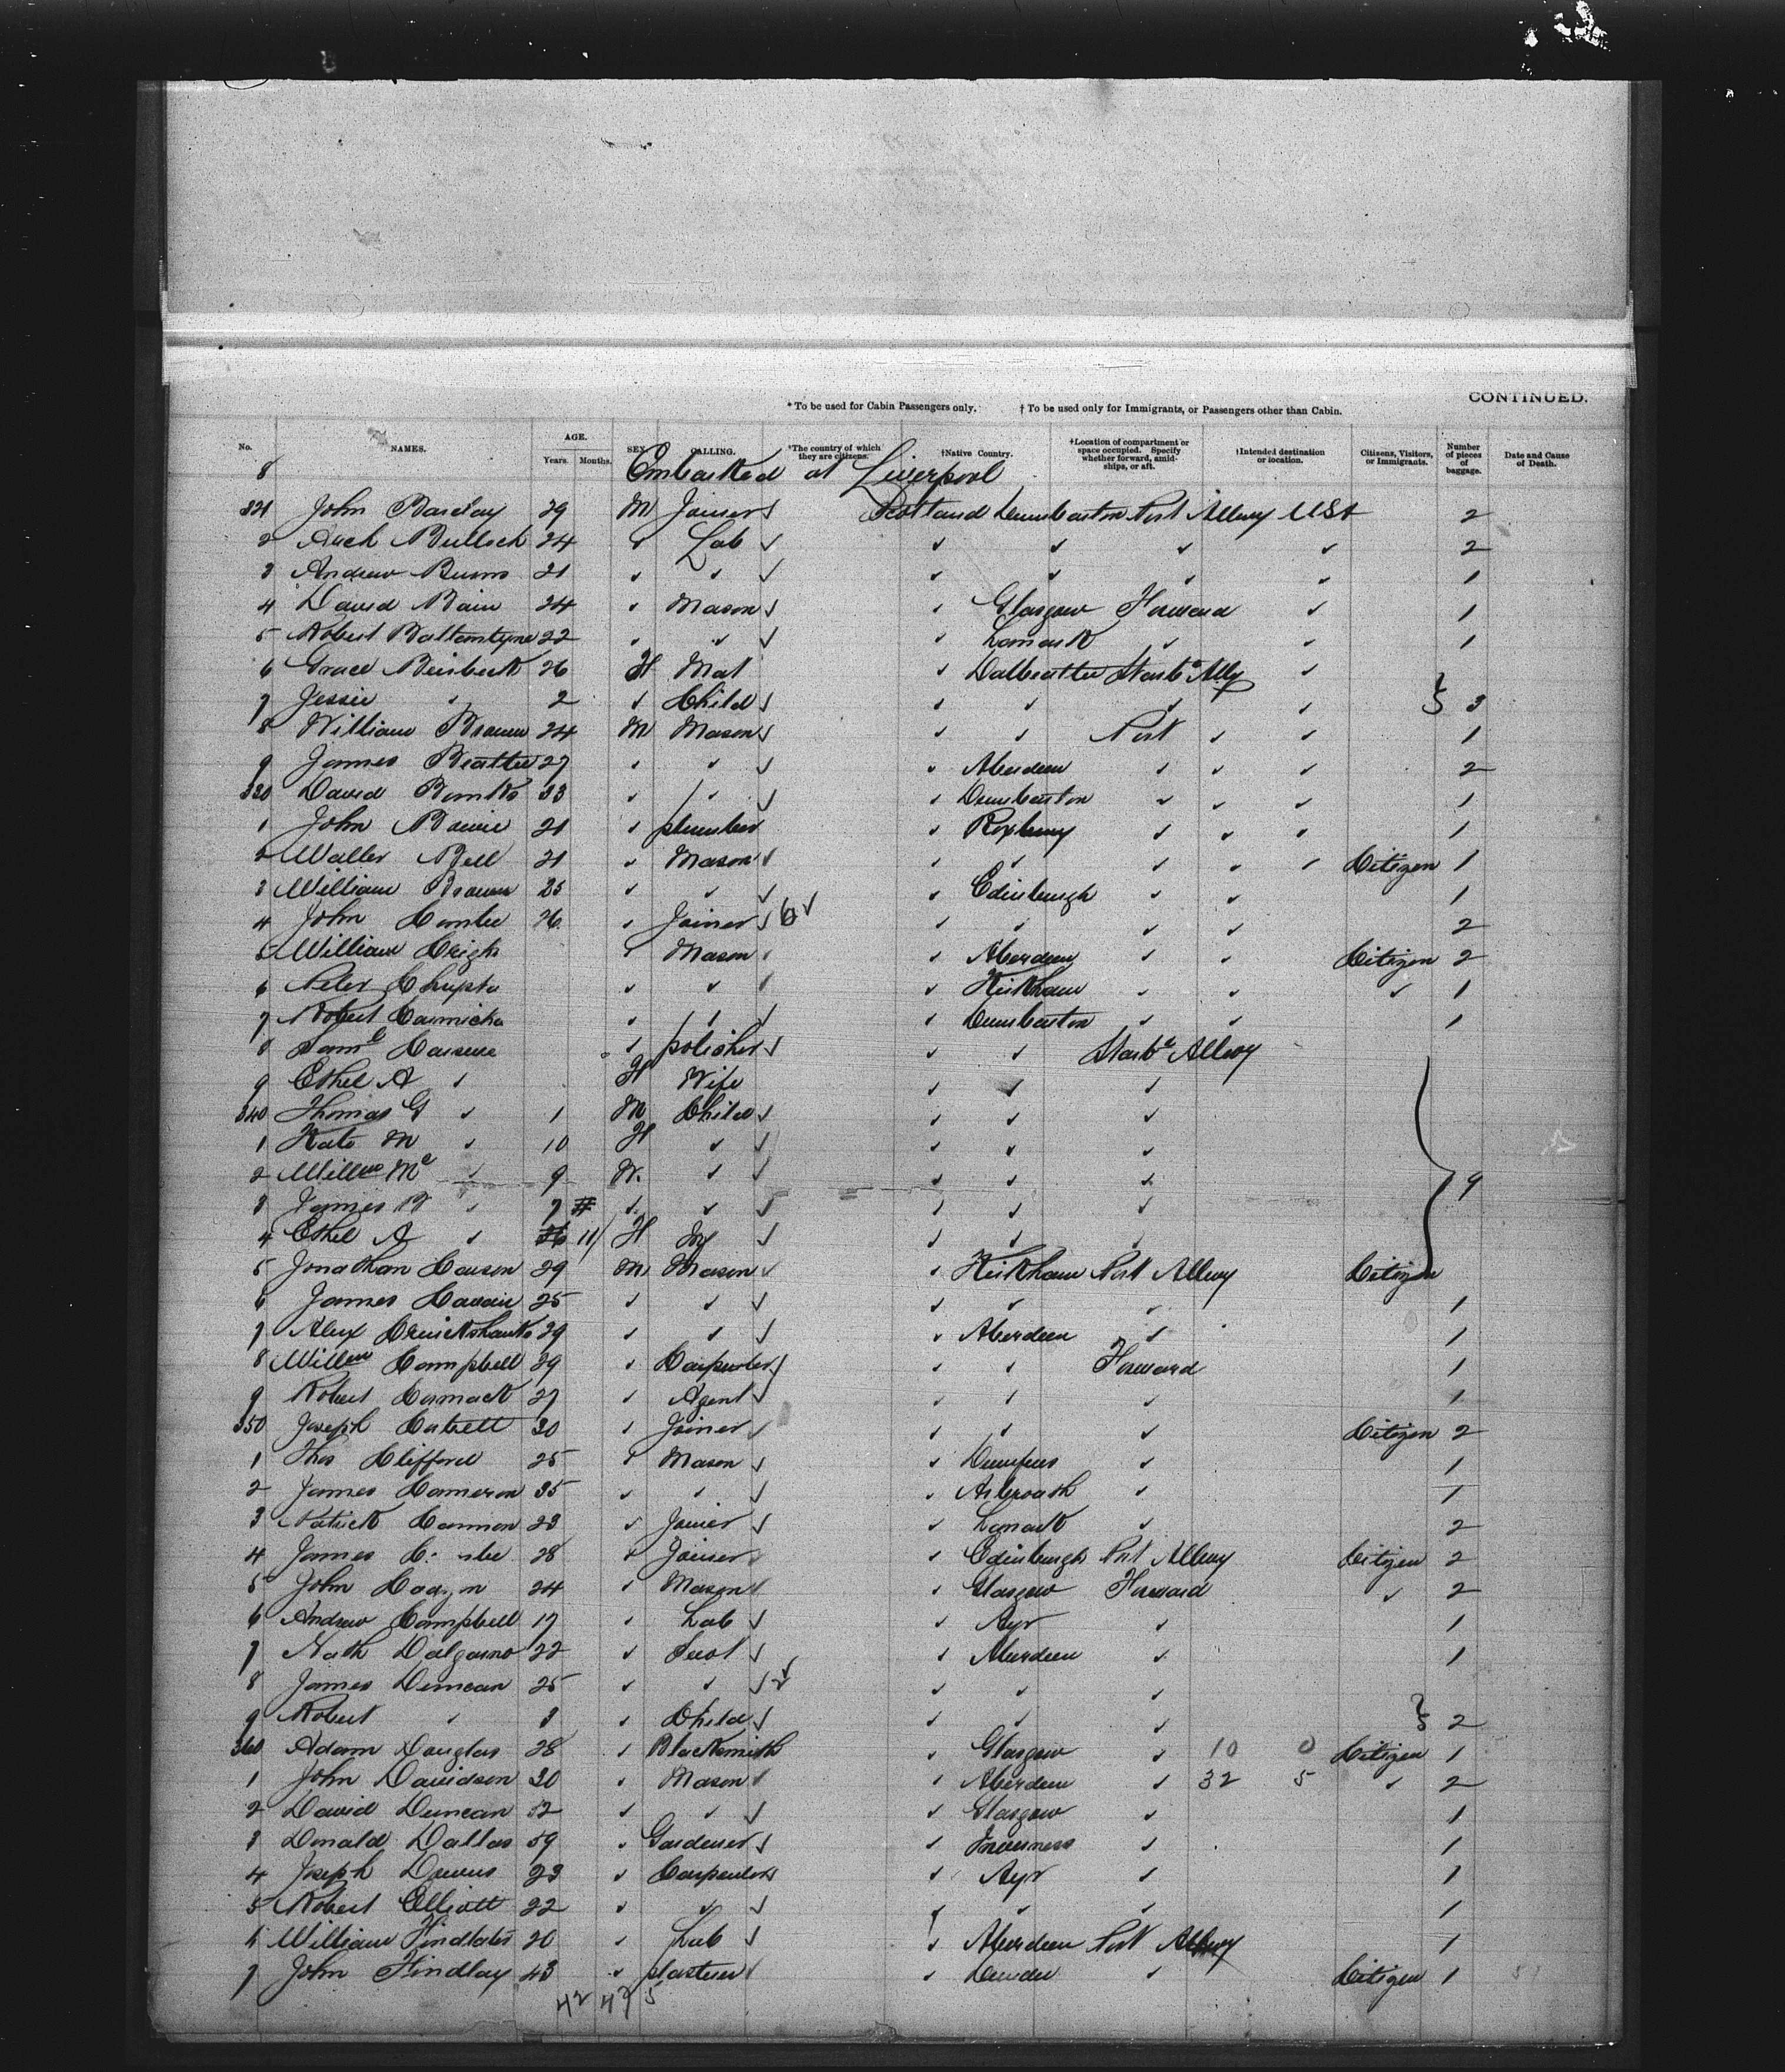 CONTINUED.
* To be used for Cabin Passengers only. † To be used only for Immigrants, or Passengers other than Cabin.
No. NAMES. AGE. Years. Months. SEX. CALLING. *The country of which they are citizens. †Native Country. †Location of compartment or space occupied. Specify whether forward, amidships, or aft. †Intended destination or location. Citizens, Visitors, or Immigrants. Number of pieces of baggage. Date and Cause of Death.
8 Embarked at Liverpool
321 John Barclay 29 M Joiner Scotland Dumbarton Port Allwy USA 2
2 Arch Bulloch 24 ✓ Lab ✓ ✓ ✓ ✓ ✓ 2
3 Andrew Burns 21 ✓ ✓ ✓ ✓ ✓ ✓ ✓ 1
4 David Bain 24 ✓ Mason ✓ Glasgow Forward ✓ 1
5 Robert Ballantyne 22 ✓ ✓ ✓ ✓ Lanark ✓ ✓ 1
6 Grace 26 F Mat ✓ Dalbeattie Starbd Allwy ✓
7 Jessie ✓ 2 ✓ Child ✓ ✓ ✓ ✓ ✓ 3
8 William Brown 24 M Mason ✓ ✓ Port ✓ ✓ 1
9 James Beattie 27 ✓ ✓ ✓ ✓ Aberdeen ✓ ✓ ✓ 2
330 David Banks 33 ✓ ✓ ✓ ✓ Dumbarton ✓ ✓ ✓ 1
1 John Bowie 21 ✓ plumber ✓ Roxburg ✓ ✓ ✓ 1
2 Walter Bell 21 ✓ Mason ✓ ✓ ✓ ✓ ✓ ✓ Citizen 1
3 William Brown 25 ✓ ✓ ✓ ✓ Edinburgh ✓ ✓ 1
4 John 26 ✓ Joiner ✓ 6 ✓ ✓ ✓ ✓ ✓ 2
5 William Creigh ✓ Mason ✓ Aberdeen ✓ ✓ Citizen 2
6 Peter ✓ ✓ ✓ ✓ Kirkham ✓ ✓ ✓ 1
7 Robert Carmicha ✓ ✓ ✓ ✓ Dumbarton ✓ ✓ 1
8 Saml ✓ polisher ✓ ✓ ✓ Starbd Allwy
9 Ethel A ✓ F Wife ✓ ✓ ✓
340 Thomas G ✓ 1 M Child ✓ ✓ ✓ ✓
1 Kate M ✓ 10 F ✓ ✓ ✓ ✓ ✓
2 Willm Mc ✓ 9 M. ✓ ✓ ✓ ✓ ✓ 9
3 James B ✓ 7 ✓ ✓ ✓ ✓ ✓ ✓
4 Ethel A ✓ 11 F Inf ✓ ✓ ✓ ✓
5 Jonathan Cawson 29 M Mason ✓ ✓ Kirkham Port Allwy Citizen
6 James 25 ✓ ✓ ✓ ✓ ✓ ✓ 1
7 Alex Cruickshanks 29 ✓ ✓ ✓ ✓ Aberdeen ✓ 1
8 Willm Campbell 29 ✓ Carpenter ✓ ✓ ✓ Forward 1
9 Robert Cormack 27 ✓ Agent ✓ ✓ ✓ ✓ 1
350 Joseph 30 ✓ Joiner ✓ ✓ ✓ ✓ Citizen 2
1 Thos Clifford 25 ✓ Mason ✓ ✓ Dumfries ✓ 1
2 James Cameron 35 ✓ ✓ ✓ ✓ Arbroath ✓ 1
3 Patrick Cannon 23 ✓ Joiner ✓ ✓ Lanark ✓ 2
4 James 28 ✓ Joiner ✓ ✓ Edinburgh Port Allwy Citizen 2
5 John 24 ✓ Mason ✓ ✓ Glasgow Forward ✓ 2
6 Andrew Campbell 17 ✓ Lab ✓ ✓ Ayr ✓ 1
7 Nath Dalgarno 22 ✓ ✓ ✓ Aberdeen ✓ 1
8 James Duncan 25 ✓ ✓ ✓ 2 ✓ ✓ ✓ ✓
9 Robert ✓ 3 ✓ Child ✓ ✓ ✓ ✓ 2
360 Adam Douglas 28 ✓ Blacksmith ✓ Glasgow ✓ 10 0 Citizen 1
1 John Davidson 30 ✓ Mason ✓ ✓ Aberdeen ✓ 32 5 ✓ 2
2 David Duncan 52 ✓ ✓ ✓ ✓ Glasgow ✓ 1
3 Donald Dallas 59 ✓ Gardener ✓ ✓ Inverness ✓ 1
4 Joseph 23 ✓ Carpenter ✓ Ayr ✓ 1
5 Robert Elliott 22 ✓ ✓ ✓ ✓ ✓ ✓ 1
6 William Findlater 20 ✓ Lab ✓ ✓ Aberdeen Port Allwy 1
7 John Findlay 43 ✓ plasterer ✓ ✓ Dundee ✓ Citizen 1
42 47 5